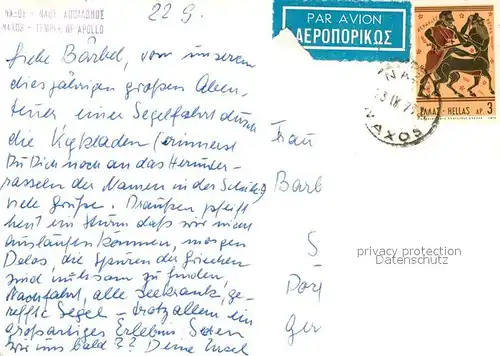 ΝΑΞΟΣ - ΝΑΟΣ ΑΠΟΛΛΩΝΟΣ
NAXOS - TEMPLE OF APOLLO
22 9.
PAR AVION
ΑΕΡΟΠΟΡΙΚΩΣ
ΕΛΛΑΣ - HELLAS ΔΡ. 3
NAXOS
Liebe Bärbel, von unserem
diesjährigen großen Aben-
teuer einer Segelfahrt durch
die Kykladen (erinnerst
Du Dich noch an das Herunter-
rasseln der Namen in der Schule?)
viele Grüße. Draußen pfeift
heut ein Sturm daß wir nicht
auslaufen können, morgen
Delos, die Spuren der Griechen
sind mühsam zu finden,
Nachtfahrt, alle seekrank, ge-
reffte Segel - trotz allem ein
großartiges Erlebnis. Sehen
wir uns bald?? Deine
Frau
Bärb
S
Dorf
Ger
privacy protection
Datenschutz